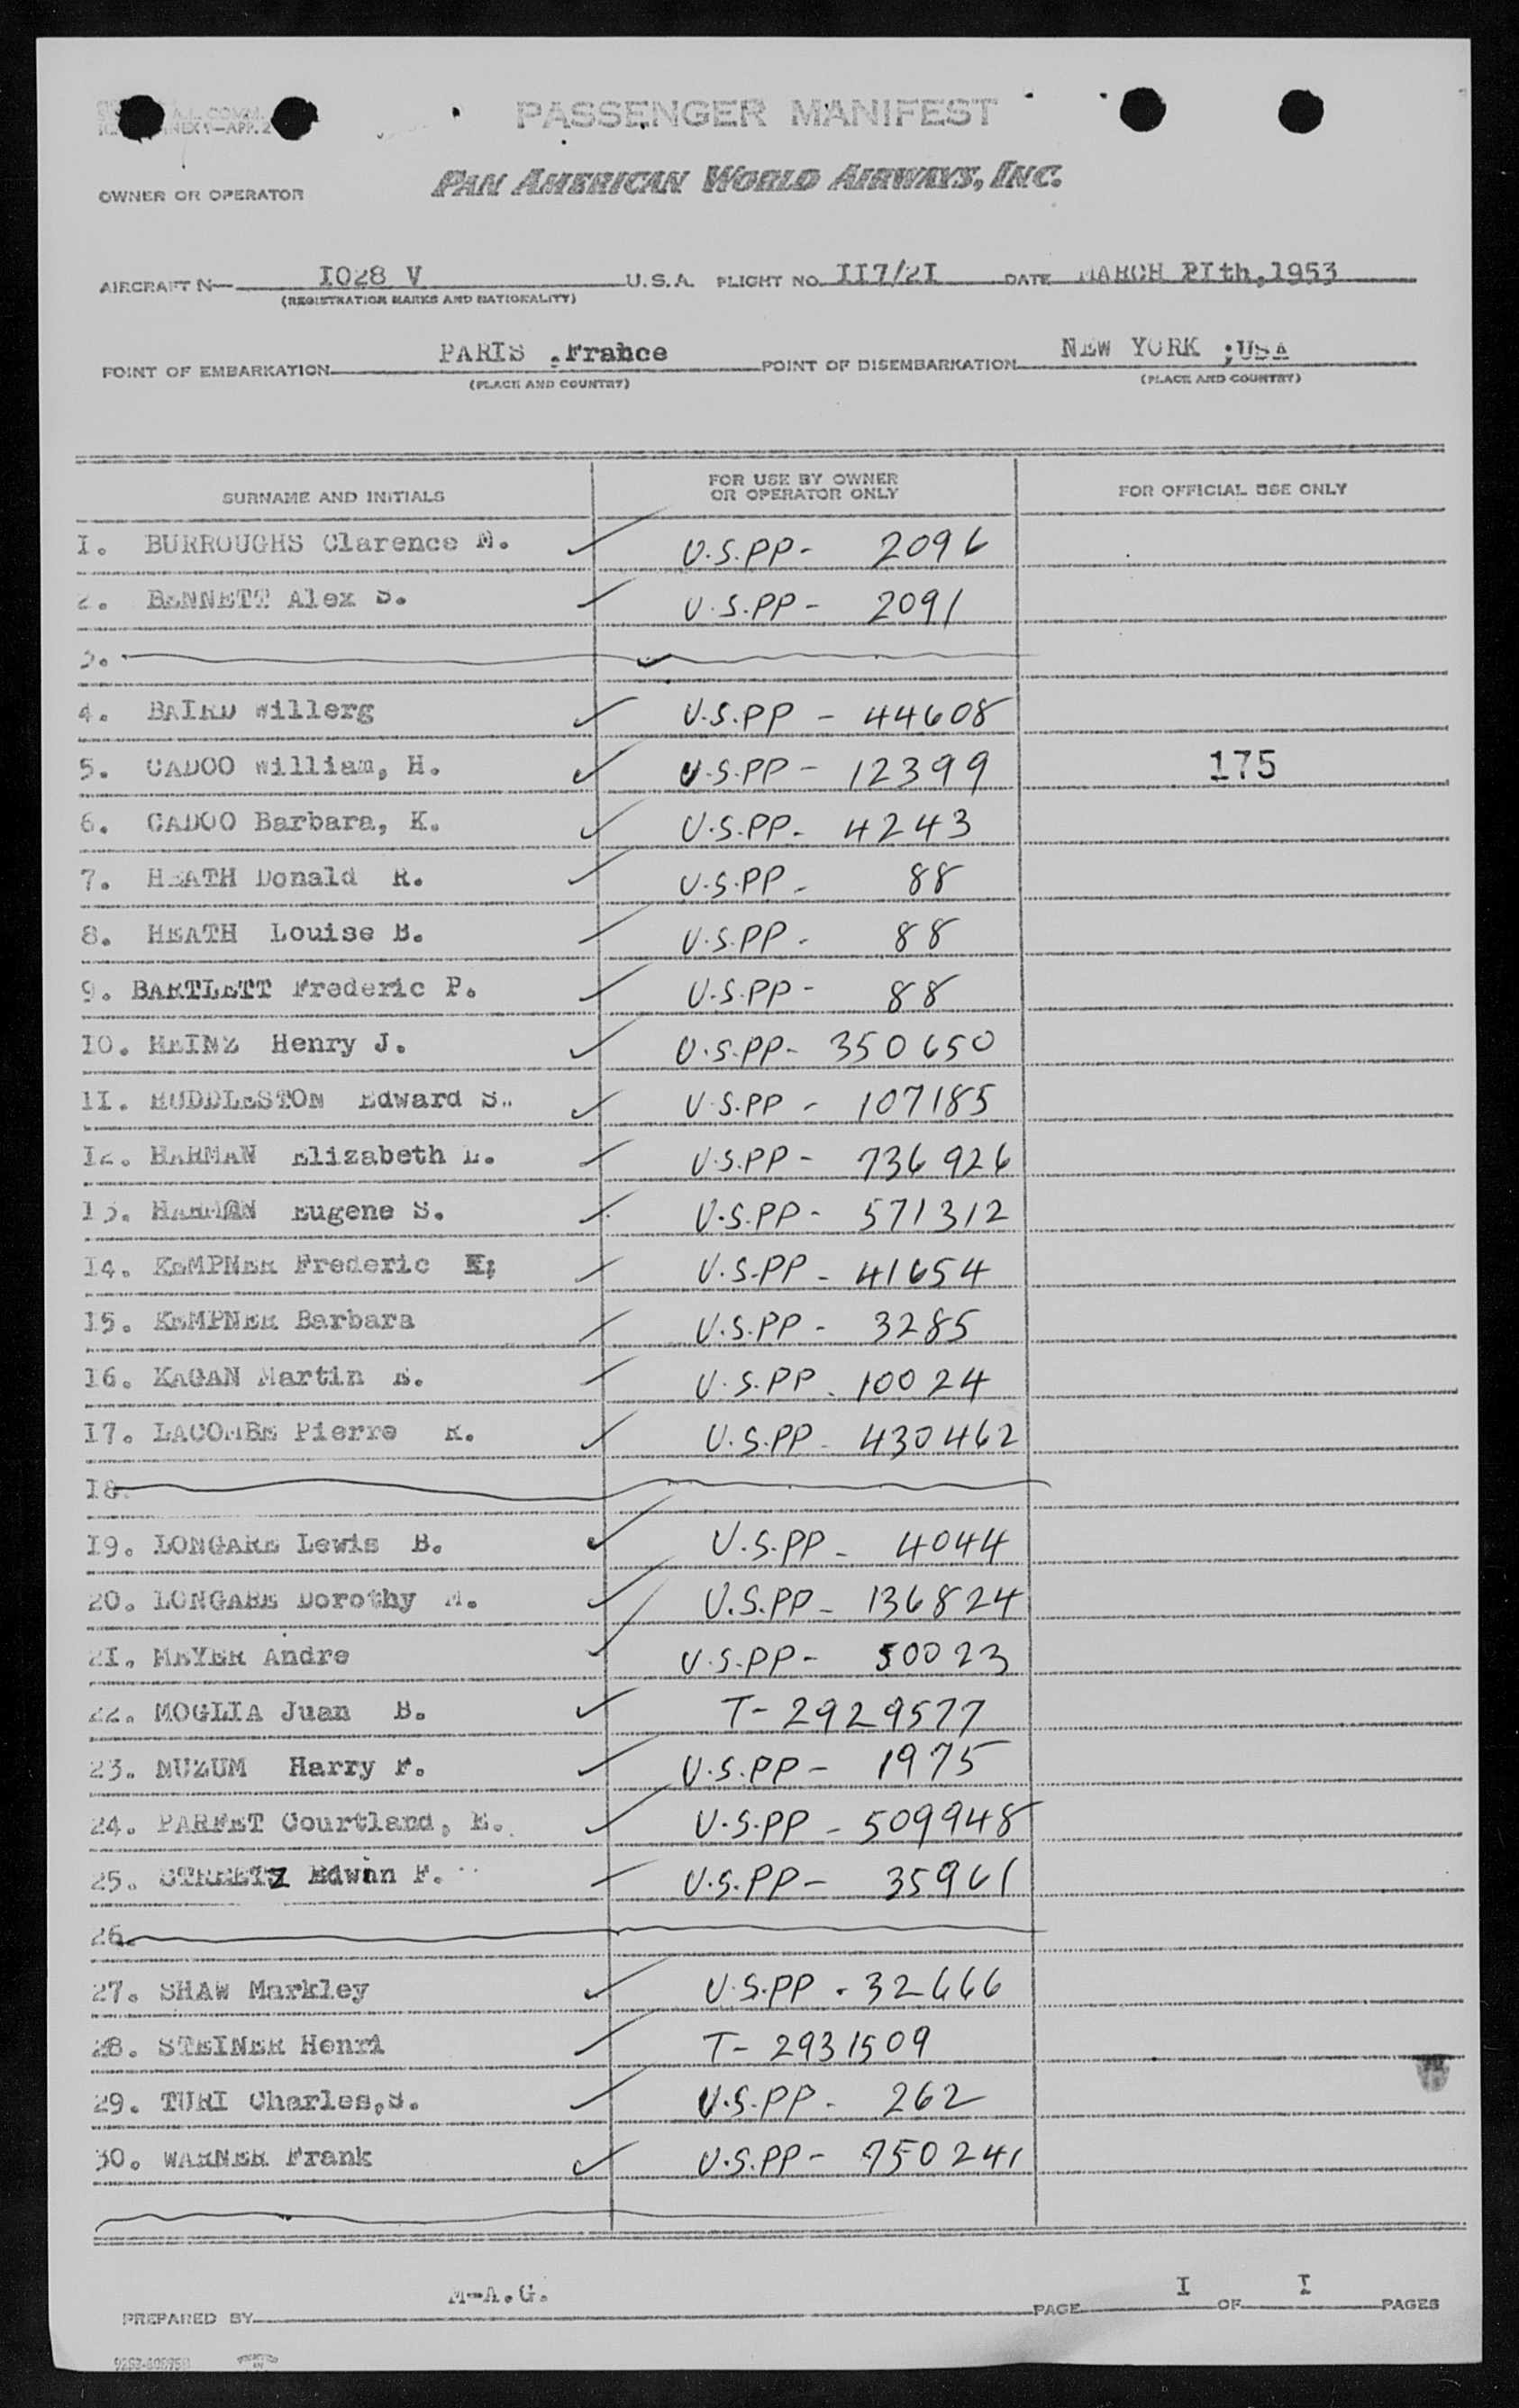 PASSENGER MANIFEST
PAN AMERICAN WORLD AIRWAYS, INC.
OWNER OR OPERATOR
AIRCRAFT N— I028 V U.S.A. FLIGHT NO. II7/2I DATE MARCH 2Ith,1953
(REGISTRATION MARKS AND NATIONALITY)
POINT OF EMBARKATION PARIS .France POINT OF DISEMBARKATION NEW YORK ;USA
(PLACE AND COUNTRY) (PLACE AND COUNTRY)
SURNAME AND INITIALS FOR USE BY OWNER OR OPERATOR ONLY FOR OFFICIAL USE ONLY
I. BURROUGHS Clarence M. U.S.PP- 2096
2. BENNETT Alex S. U.S.PP- 2091
3.
4. BAIRD Willerg U.S.PP - 44608
5. CADOO William, H. U.S.PP- 12399 175
6. CADOO Barbara, K. U.S.PP- 4243
7. HEATH Donald R. U.S.PP- 88
8. HEATH Louise B. U.S.PP- 88
9. BARTLETT Frederic P. U.S.PP- 88
I0. HEINZ Henry J. U.S.PP- 350650
II. HUDDLESTON Edward S.. U.S.PP - 107185
I2. HARMAN Elizabeth L. U.S.PP- 736926
I3. HARMAN Eugene S. U.S.PP- 571312
I4. KEMPNER Frederic U.S.PP - 41654
I5. KEMPNER Barbara U.S.PP - 3285
I6. KAGAN Martin E. U.S.PP. 10024
I7. LACOMBE Pierre R. U.S.PP- 430462
I8.
I9. LONGARE Lewis B. U.S.PP- 4044
20. LONGARE Dorothy M. U.S.PP- 136824
2I. MEYER Andre U.S.PP- 50023
22. MOGLIA Juan B. T- 2929577
23. NUZUM Harry F. U.S.PP- 1975
24. PARFET Courtland, E. U.S.PP - 509948
25. STREETZ Edwin F. U.S.PP- 35961
26.
27. SHAW Markley U.S.PP - 32666
28. STEINER Henri T- 2931509
29. TURI Charles,S. U.S.PP- 262
30. WARNER Frank U.S.PP- 750241
PREPARED BY M-A.G. PAGE I OF I PAGES